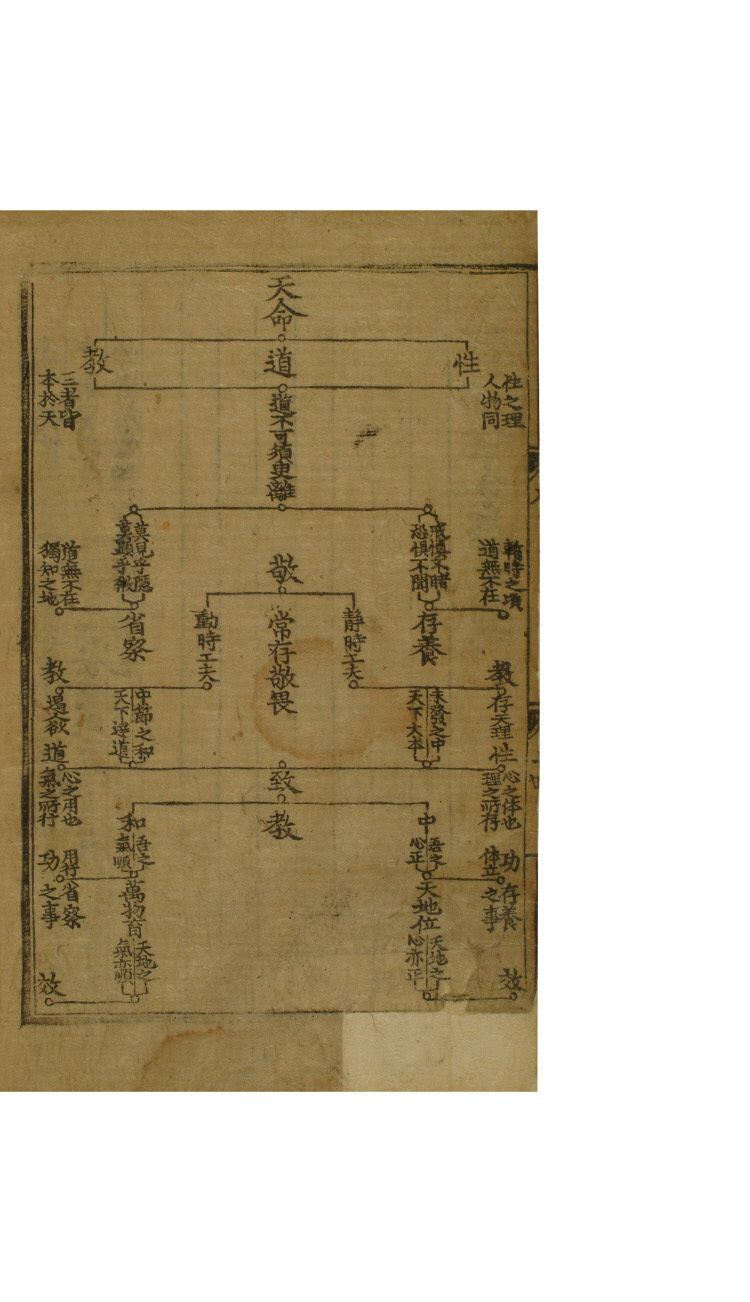 天命
性
道
教
性之理
人物同
三者皆
本於天
道不可須臾離
戒慎不睹
恐懼不聞
莫見乎隱
莫顯乎微
時之頃
道無不在
道無不在
獨知之地
敬
存養
常存敬畏
省察
靜時工夫
動時工夫
教
存天理
教
遏欲
未發之中
天下大本
中節之和
天下達道
性
心之体也
理之所存
道
心之用也
氣之所行
致
教
中
吾之
心正
和
吾之
氣順
功
体立
存養
之事
功
用行
省察
之事
天地位
天地之
心亦正
萬物育
天地之
氣亦順
效
效